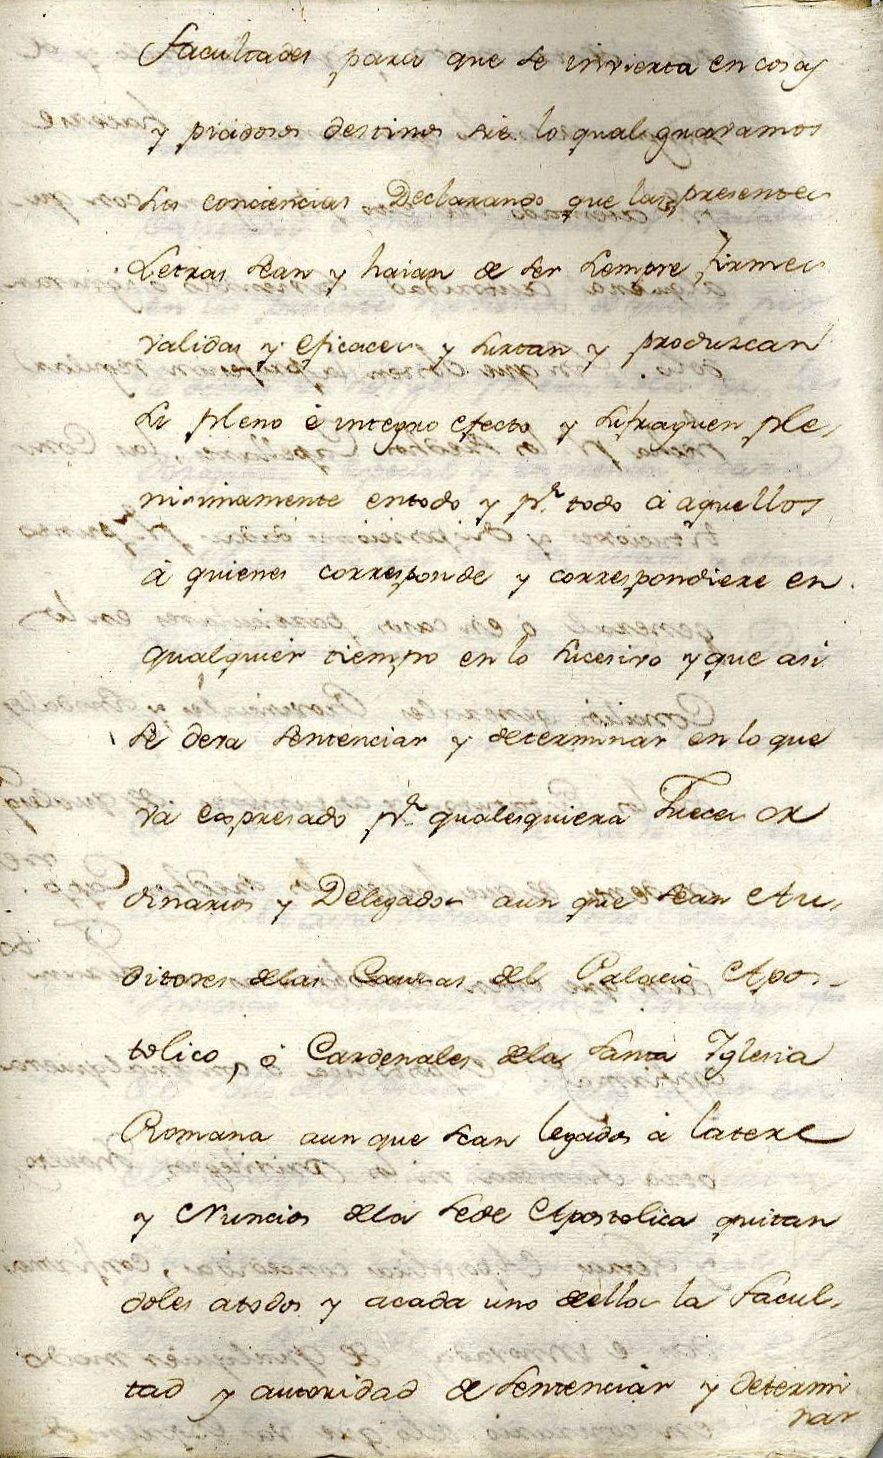 Facultades para que se invierta en cosas
y piadosos destinos sre. lo qual gravamos
sus conciencias. Declarando que las presentes
Letras sean y haian de ser siempre firmes
validas y eficaces y surtan y produzcan
su pleno è integro efecto y sufraguen ple-
nisimamente entodo y pr. todo à aquellos
à quienes corresponde y correspondiere en
qualquier tiempo en lo sucesivo y que asi
se deva sentenciar y determinar en lo que
va espresado pr. qualesquiera Jueces or
dinarios y Delegados aun que sean Au-
ditores delas Causas del Palacio Apos-
tolico, ò Cardenales dela Santa Yglesia
Romana aun que sean legados à latere
y Nuncios dela Sede Apostolica quitan
doles atodos y acada uno dellos la facul-
tad y autoridad de sentenciar y determi
nar